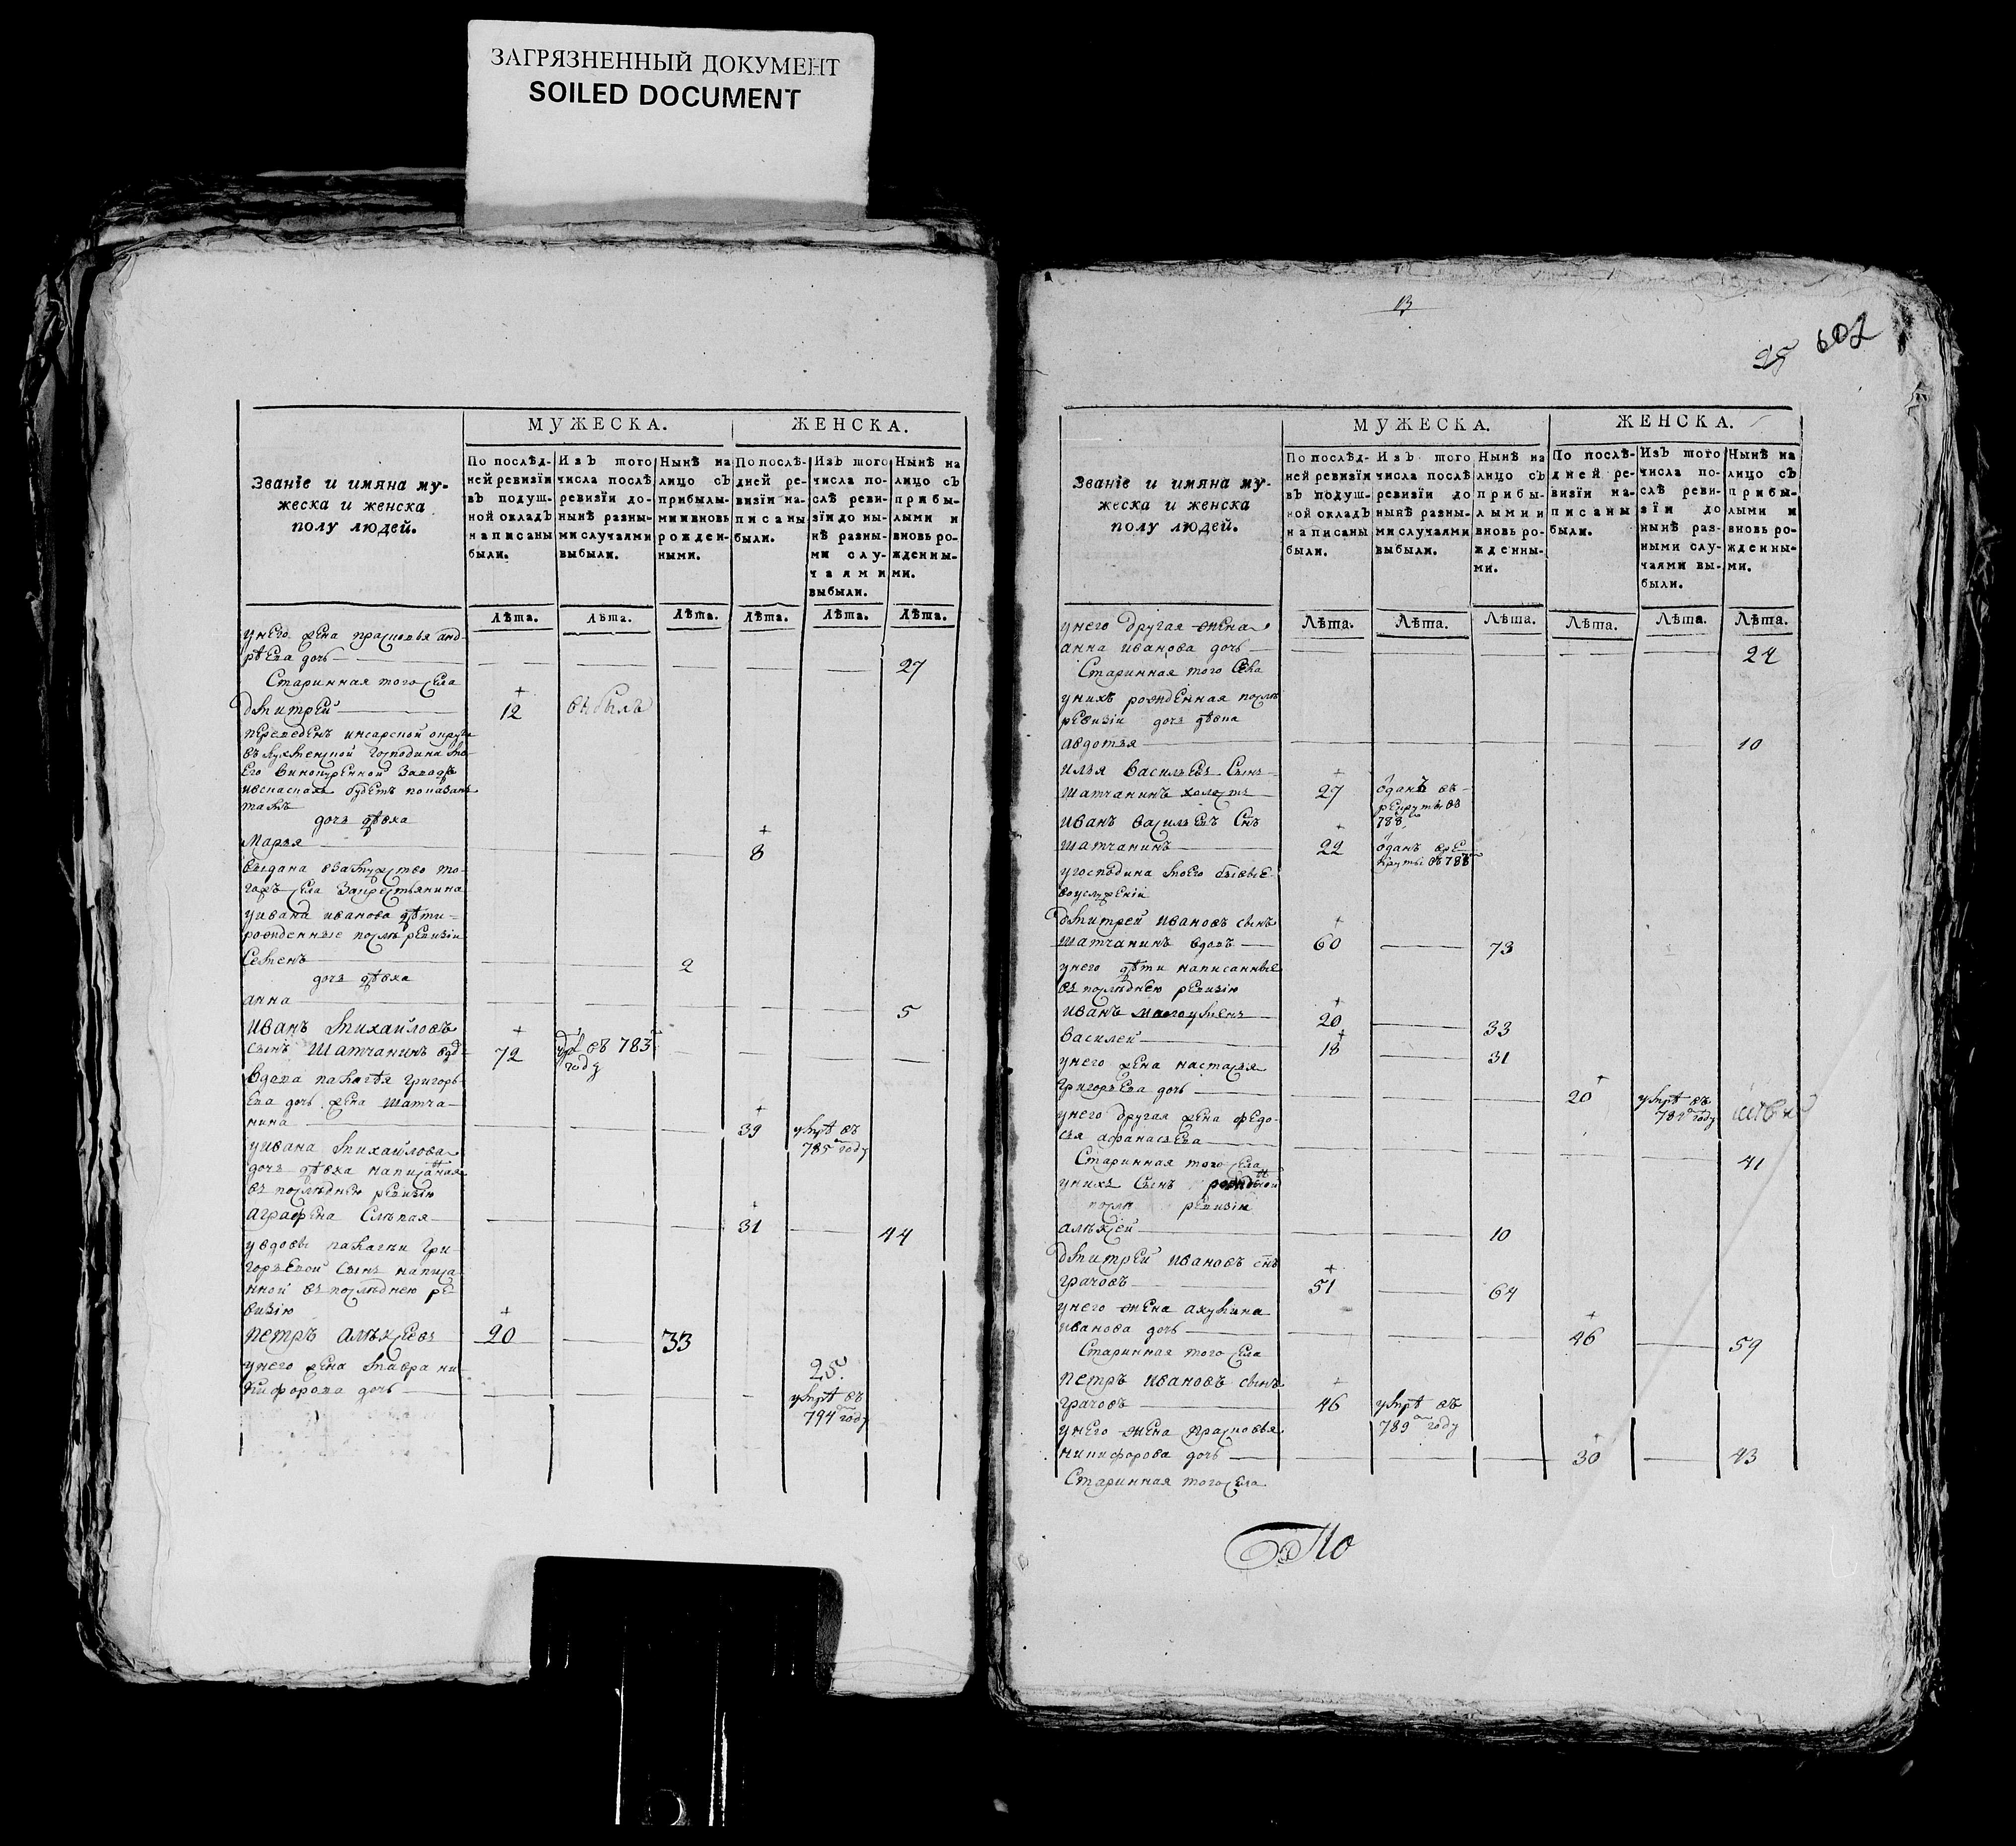 ЗАГРЯЗНЕННЫЙ ДОКУМЕНТ
SOILED DOCUMENT
Званїе и имяна му-
жеска и женска
полу людей.
МУЖЕСКА.
ЖЕНСКА.
По послѣд-
ней ревизїи
въ подуш-
ной окладъ
написаны
были.
Изъ того
числа послѣ
ревизїи до-
нынѣ разны-
ми случаями
выбыли.
Нынѣ на
лицо съ
прибылы-
ми и вновь
рожден-
ными.
По послѣ-
дней ре-
визїи на-
писаны
были.
Изъ того
числа по-
слѣ реви-
зїи до ны-
нѣ разны-
ми слу-
чаями
выбыли.
Нынѣ на
лицо съ
прибы-
лыми и
вновь ро-
жденны-
ми.
Лѣта. Лѣта. Лѣта. Лѣта. Лѣта. Лѣта.
у него жена прасковья анд-
рѣева дочь 27
Старинная того села
дмитрей 12 выбылъ
переведенъ инсарской округи
его винокуренной заводъ
будетъ показанъ
тамъ
дочь дѣвка
Марья 8
выдана взамужство то-
гожъ села за крестьянина
у ивана иванова дѣти
рожденные послѣ ревизіи
Семенъ 2
дочь дѣвка
анна 5
Иванъ михайловъ
сынъ Шатчанинъ 72 въ 783
году
вдова пелагѣя григорь-
ева дочь жена шатча-
нина 39 умрѣ въ
785 году
у ивана михайлова
дочь дѣвка написаная
въ послѣднею ревизію
аграфена Слѣпая 31 44
у вдовы пелагеи гри-
горьевой сынъ написа
нной въ послѣднею ре
визію
петръ алѣксѣевъ 20 33
у него жена мавра ни-
кифорова дочь 25.
умрѣ въ
794 году
602
Званїе и имяна му-
жеска и женска
полу людей.
МУЖЕСКА.
ЖЕНСКА.
По послѣд-
ней ревизїи
въ подуш-
ной окладъ
написаны
были.
Изъ того
числа послѣ
ревизїи до
нынѣ разны-
ми случаями
выбыли.
Нынѣ на
лицо съ
прибы-
лыми и
вновь ро-
жденны-
ми.
По послѣ-
дней ре-
визїи на-
писаны
были.
Изъ того
числа по-
слѣ реви-
зїи до
нынѣ раз-
ными слу-
чаями вы-
были.
Нынѣ на
лицо съ
прибы-
лыми и
вновь ро-
жденны-
ми.
Лѣта. Лѣта. Лѣта. Лѣта. Лѣта. Лѣта.
у него другая жена
анна иванова дочь 24
Старинная того села
у нихъ рожденная послѣ
ревизіи дочь дѣвка
авдотья 10
илья васильевъ сынъ
шатчанинъ холостъ 27 оданъ въ
рекруты въ
788
иванъ васильевъ снъ
шатчанинъ 22 оданъ вре
круты въ 787
у господина моего бывые
во услужении
дмитрей ивановъ сынъ
шатчанинъ вдовъ 60 73
у него дѣти написанные
въ послѣднею ревизію
иванъ малоуменъ 20 33
василей 18 31
у него жена настасья
григорьева дочь 20 умрѣ въ
784 году
у него другая жена федо-
сья афанасьева 41
Старинная того села
у нихъ сынъ рожденной
послѣ ревизіи
алѣксѣй 10
дмитрей ивановъ снъ
грачовъ 51 64
у него жена акулина
иванова дочь 46 59
Старинная того села
петръ ивановъ сынъ
грачовъ 46 умрѣ въ
789 году
у него жена прасковья
никифорова дочь 30 43
Старинная того села
По